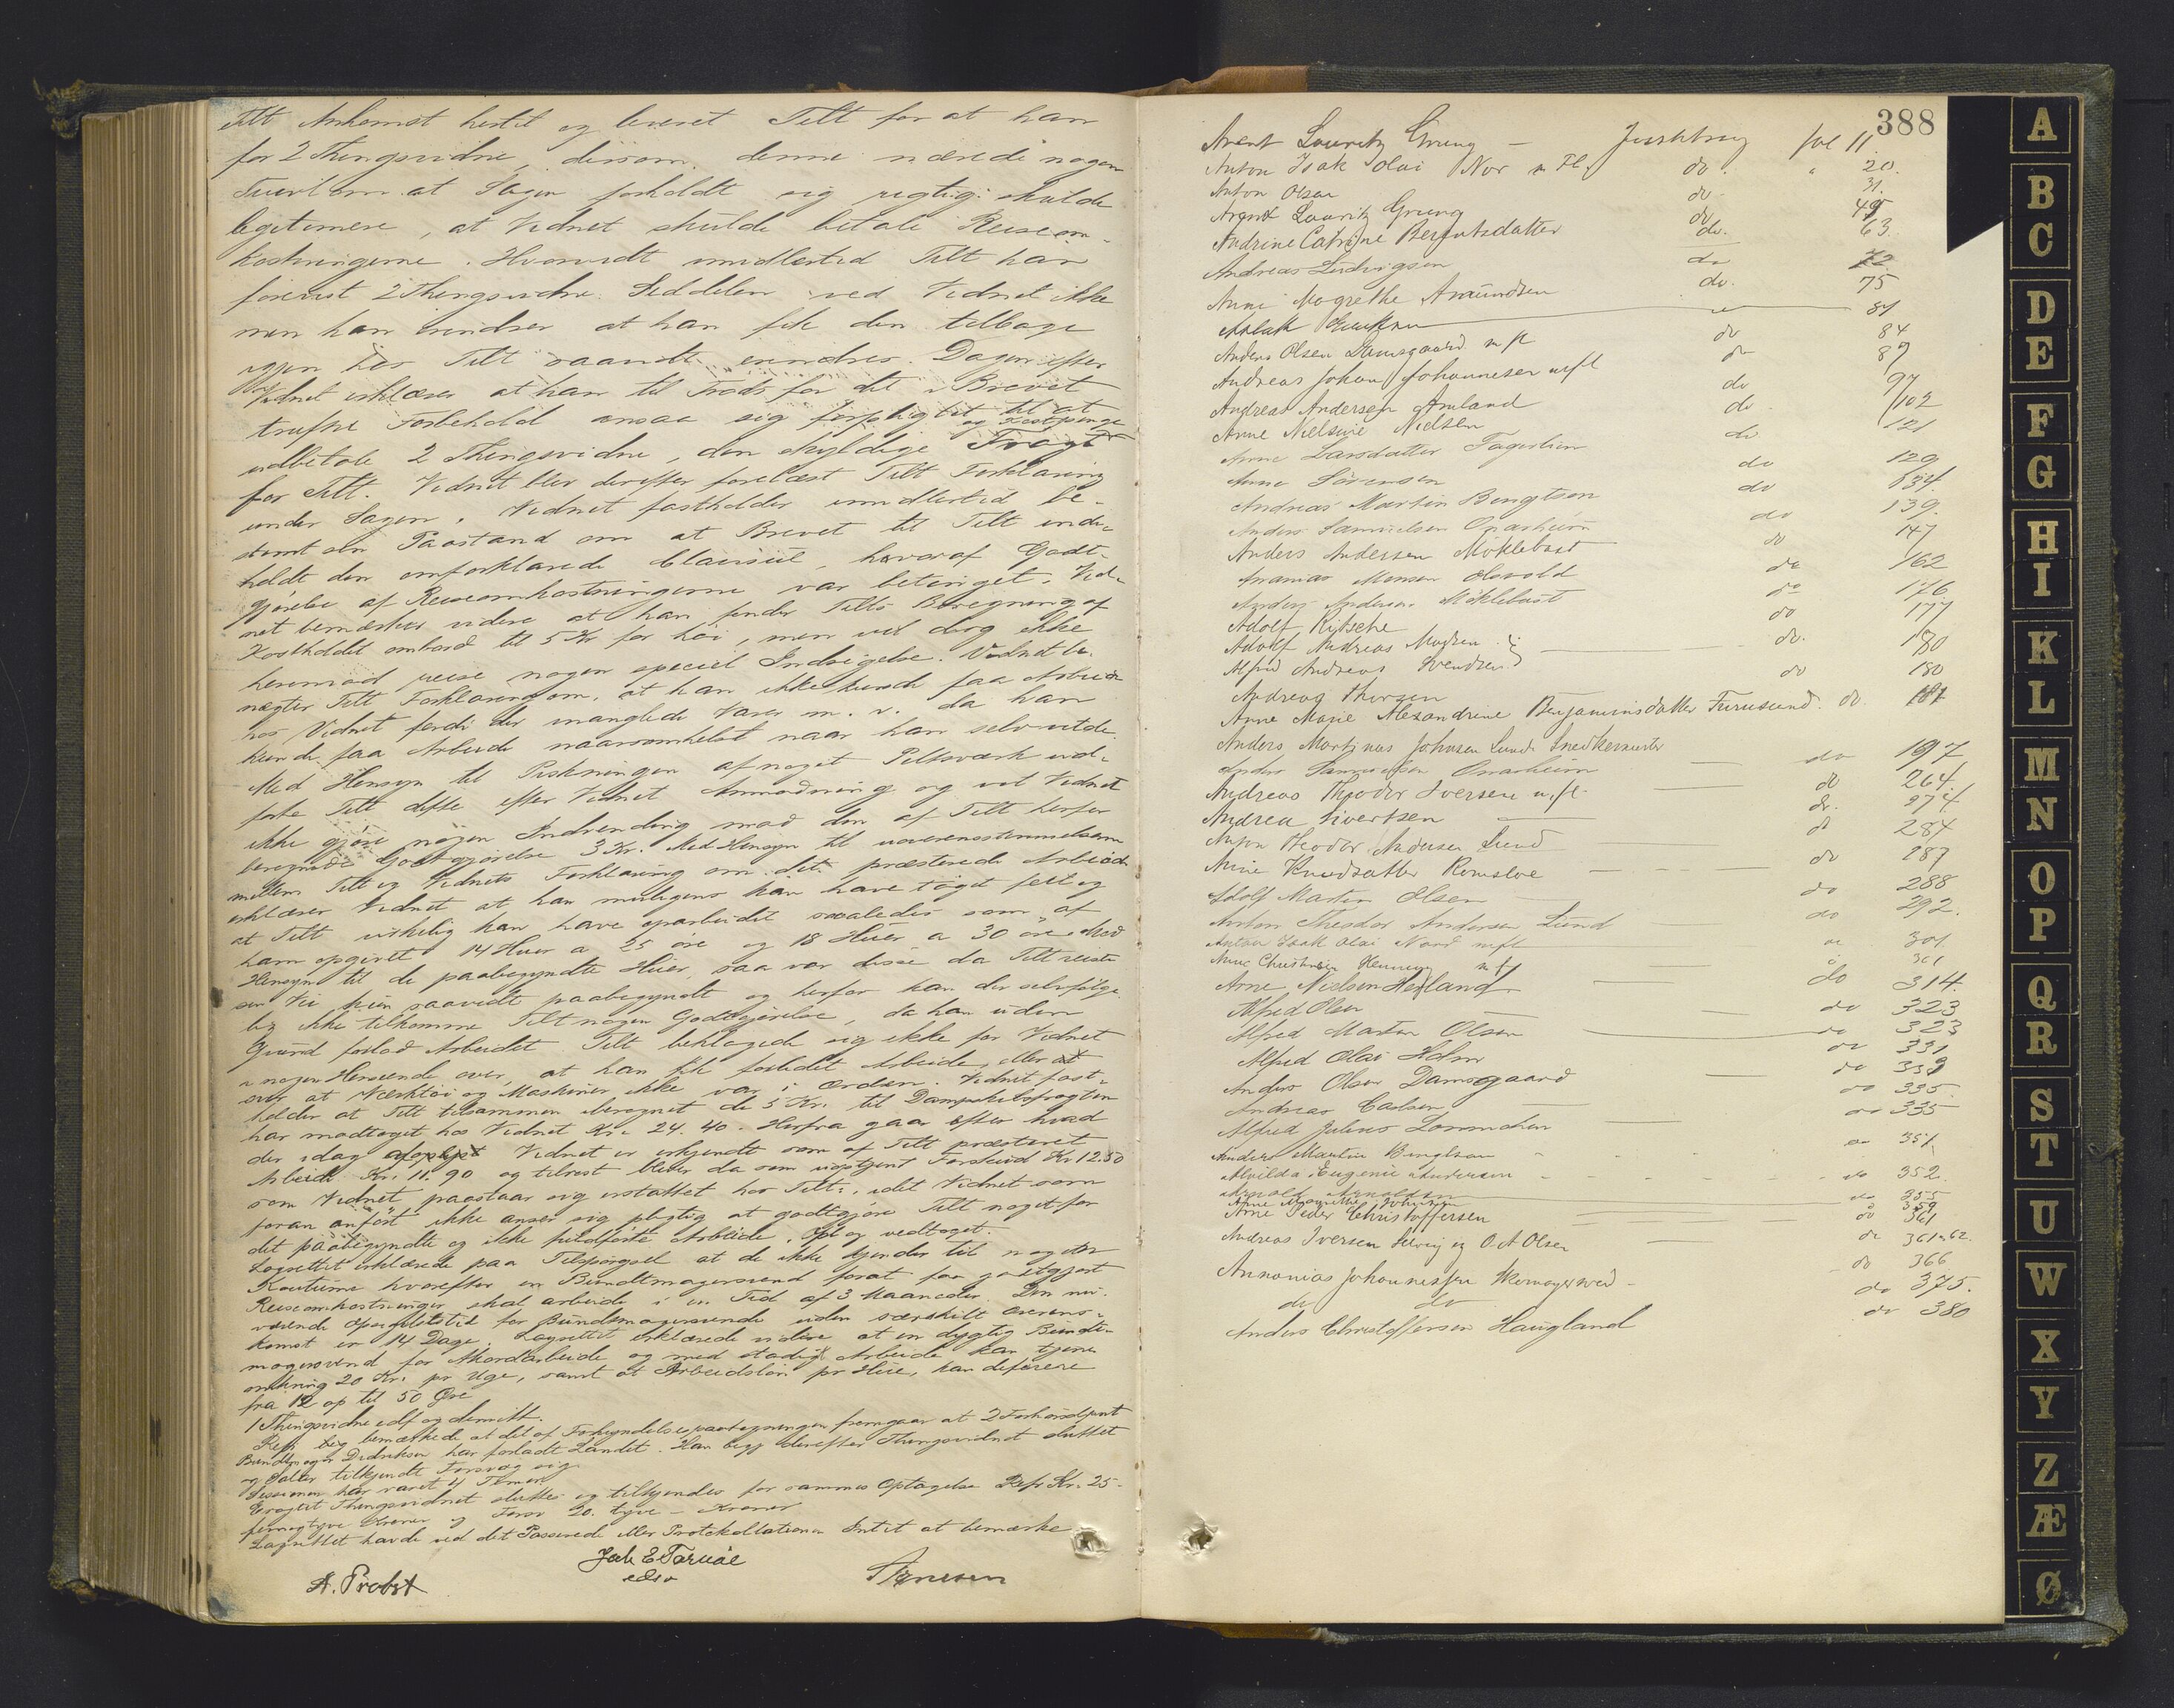 Tilt Ankomst hertil og leveret Tilt for at han
for 2 Thingsvidne, dersom denne nærede nogen
Tvivl om at Sagen forholdt sig rigtig skulde
legitimere, at Vidnet skulde betale Reiseom-
kostningerne. Hvorvidt imidlertid Tilt har
forevist 2 Thingsvidne Seddelen ved Vidnet ikke
men han erindrer at han fik den tilbage
igjen hos Tilt erindres. Dagen efter
Vidnet erklærer at han til Trods for det i Brevet
trufne Forbehold ansaa sig forpligtet til at
udbetale 2 Thingsvidne, den skyldige Fragt og Kostpenge
for Tilt. Vidnet blev derefter forelæst Tilt Forklaring
under Sagen. Vidnet fastholder imidlertid be-
stemt sin Paastand om at Brevet til Tilt inde-
holdt den omforklarede Clausul, hvoraf Godt-
gjørelse af Reiseomkostningerne var betinget. Vid-
net bemærker videre at han finder Tilts Beregning af
Kostholdet ombord til 5 Kr for høi, men vil dog ikke
herimod reise nogen speciel Indsigelse. Vidnet be-
nægter Tilt Forklaring om, at han ikke kunde faa Arbeide
hos Vidnet fordi der manglede Varer m. v. da han
kunde faa Arbeide naarsomhelst naar han selv vilde.
Med Hensyn til Piskningen af noget Peltsværk ud-
førte Tilt dette efter Vidnet Anmodning og vil Vidnet
ikke gjøre nogen Indvending mod den af Tilt herfor
beregnede Godtgjørelse 3 Kr. Med Hensyn til uoverensstemmelsen
mellem Tilt og Vidnets Forklaring om det præsterede Arbeide
erklærer Vidnet at han muligens kan have taget feil og
at Tilt virkelig kan have oparbeidet saaledes som af
ham opgivet 14 Huer a 25 øre og 18 Huer a 30 øre. Med
Hensyn til de paabegyndte Huer, saa var disse da Tilt reiste
sin Vei kun saavidt paabegyndt og herfor kan der selvfølge-
lig ikke tilkomme Tilt nogen Godtgjørelse, da han uden
Grund forlod Arbeidet. Tilt beklagede sig ikke for Vidnet
i nogen Henseende over, at han fik Arbeide, eller
over at Værktøi og Maskiner ikke var i Orden. Vidnet fast-
holder at Tilt tilsammen iberegnet de 5 Kr. til Dampskibsfragten
har modtaget hos Vidnet Kr. 24. 40. Herfra gaar efter hvad
der idag af Vidnet er erkjendt som af Tilt præsteret
Arbeide Kr. 11. 90 og tilrest bliver da som uoptjent Forskud Kr 12.50
som Vidnet paastaar sig erstattet hos Tilt, idet Vidnet som
foran anført ikke anser sig pligtig at godtgjøre Tilt noget for
det paabegyndte og ikke fuldførte Arbeide. Opl og vedtaget.
Lagrettet erklærede paa Tilspørgsel at de ikke kjender til nogen
Koutume hvorefter en Bundtmagersvend forat faa godtgjort
Reiseomkostninger skal arbeide i en Tid af 3 Maaneder. Den nu-
værende Opsigelsestid for Bundtmagersvende uden særskilt Overens-
komst er 14 Dage. Lagrettet erklærede videre at en dygtig Bundt-
magersvend for Akordarbeide og med stadig Arbeide kan tjene
omkring 20 Kr. pr Uge, samt at Arbeidsløn pr Hue, kan deferere
fra 12 op til 50 Øre
1 Thingsvidne edf og demitt.
Rqs beg bemærkede at det af Forkyndelsespaategningen fremgaar at 2 Forhørsdpunt
Bundtmager Didriksen har forladt Landet. Han begj derefter Thingsvidnet sluttet
og Salær tilkjendt Forsvar sig.
Sessionen har varet 4 Timer.
Eragtet Thingsvidnet sluttes og tilkjendes for sammes Optagelse Rqfr Kr. 25.
femogtyve Kroner og Forsv 20. tyve - Kroner
Lagrettet havde ved det Passerede eller Protokollationen Intet at bemærke
A. Probst
388
Arent Lauritz Grung - Justitsag fol 11
Anton Isak Olai Nor m Fl. do. 20.
Anton Olsen do 31.
Arent Lauritz Grung do 45
Andrine Catrine Berentsdatter do. 63.
Andreas Ludvigsen do 72
Anne Margrethe Amundsen do. 75
Aslak 81
Anders Olsen Damsgaard m fl do 84
Andreas Johan Johannesen mfl do 89
Andreas Andersen Amland do 97
Anne Nielsine Nielsen do 102
Anne Larsdatter Fagerlien do 121
Anne Sørensen do 129
Andreas Martin Bengtson do 134
Anders Samuelsen Onarheim do 139.
Anders Andersen Møklebost do 147
Ananias Monsen do 162
Anders Andersen Møklebust do 176
Adolf Ritsche do 177
Adolf Andreas Madsen } do. 180
Alfred Andreas Svendsen } do 180
Andreas Thorsen
Anne Marie Alexandrine Benjaminsdatter Furusund. do. 181
Anders Martinus Johnsen Lund Snedkermester
Anders Samuelsen Onarheim do 197
Andreas Theodor Iversen m.fl. do 264.
Andrea Sivertsen do. 274
Anton Theodor Andersen Lund do 284
Anne Knudsdatter Romsloe do 287
Adolf Martin Olsen do 288
Anton Theodor Andersen Lund do 292.
Anton Isak Olai Nord mfl do 301.
Anne Christine Henning m fl 301
Arne Nielsen Helland do 314.
Alfred Olsen do 323
Alfred Martin Olsen do 323
Alfred Olai Holm do 331
Anders Olsen Damsgaard do 333
Andreas Carlsen do 335
Alfred Julius Lommchen do 335
Anders Martin Bengtson do 351
Alvilda Eugenie Andersen do 352.
Arnold Arnoldsen do 355
Anne Margrethe Johnsen do 359
Arne Peder Christoffersen do 361
Andreas Iversen og O. A Olsen do 361-62.
Annanias Johannessen do 366
do do do 375.
Anders Christoffersen Haugland do 380
A
B
C
D
E
F
G
H
I
K
L
M
N
O
P
Q
R
S
T
U
W
X
Y
Z
Æ
Ø